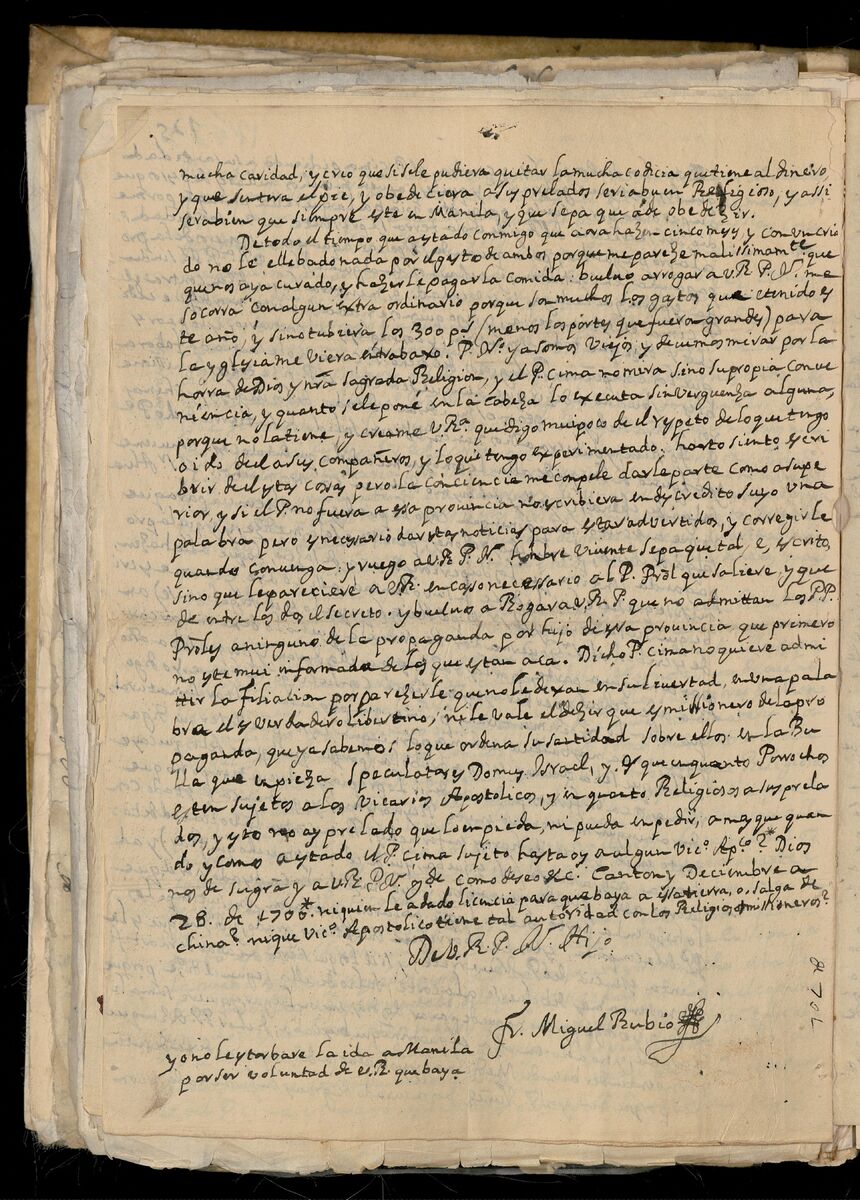 mucha caridad, y creo que si se le pudiera quitar la mucha codicia que tiene al dinero
y que sintera el pie, y obedeciera a sus prelados seria buen Religioso, y assi
sera bien que siempre este en Manila, y que sepa que á de obedezir.
De todo el tiempo que a estado conmigo que aora hazen cinco meses y con un cria
do no le e llebado nada por el gasto de ambos porque me pareze malissimamte que
que nos aya curado, y hazerle pagar la comida: buelbo arrogar a V.R.P.N. me
socorra con algun extra ordinario porque son muchos los gastos que e tenido es
te año, y si no tubiera los 300 ps (menos los portes que fuera grandes) para
la yglesia me viera en trabaxo. P. No. ya somos viejos y devemos mirar por la
honrra de Dios y nra sagrada Religion, y el P. Cima no mira sino su propia conve
niencia, y quanto se le pone en la cabeza lo executa sin verguenza alguna,
porque no la tiene, y creame V.Ra. que digo mui poco de el respeto de lo que tengo
oido del a sus compañeros, y lo que tengo experimentado: harto siento escri
brir de el estas cosas pero la conciencia me compele darle parte como a supe
rior, y si el P. no fuera a essa provincia no escribiera en descredito suyo una
palabra pero es necessario dar estas noticias para estar advertidos, y corregirle
quando convenga: y ruego a V.R.P.N. hombre viviente sepa que tal e, escrito
sino que le pareciere a V.R. en caso necessario al P. Prol que saliere, y que
de entre los dos el secreto. y buelvo a Rogar a V.R.P. que no admittan los P.P.
Proles a ninguno de la propaganda por hijo de essa provincia que primero
no este mui informado de los que estan aca. Dicho P. Cima no quiere admi
ttir la filiacion por parezerle que no le dexan en su livertad, en una pala
bra el es verdadero libertino, ni le vale el dezir que es missionero de la pro
paganda, que ya sabemos lo que ordena su santidad sobre ellos en la Bu
lla que enpieza Speculatores Domus Israel, y es que en quanto Parrochos
esten sujetos a los Vicarios Apostolicos, y en quanto Religiosos a sus prela
dos, y esto no ay prelado que lo enpida, ni pueda enpedir, a mas que quan
do y como a estado el P. Cima sujeto hasta oy a algun Vico. Apco. Dios
nos de su gra y a V.R.P.N. gde como deseo &c. Canton y Deciembre a
28. de 1706. ni quien le a dado licencia para que baya a essa tierra, o salga de
china? ni que Vico. Apostolico tiene tal autoridad con los Religiosos missioneros?
De V.R.P.N. Hijo
Fr. Miguel Rubio
yo no le estorbare la ida a Manila
por ser voluntad de V.R. que baya